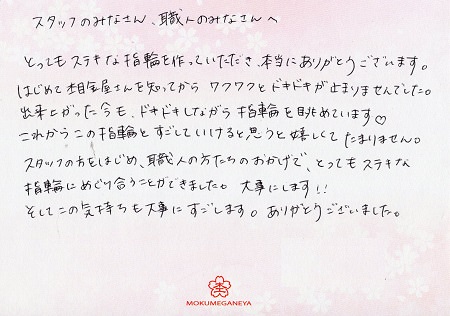 スタッフのみなさん、職人のみなさんへ
とってもステキな指輪を作っていただき、本当にありがとうございます。
はじめて杢目金屋さんを知ってから ワクワクと ドキドキが止まりませんでした。
出来上がった今も、ドキドキしながら 指輪を眺めています♡
これからこの指輪と すごしていけると思うと 嬉しくて たまりません。
スタッフの方をはじめ、職人の方たちのおかげで、とってもステキな
指輪にめぐり合うことができました。大事にします!!
そしてこの気持ちも大事にすごします。ありがとうございました。
MOKUMEGANEYA